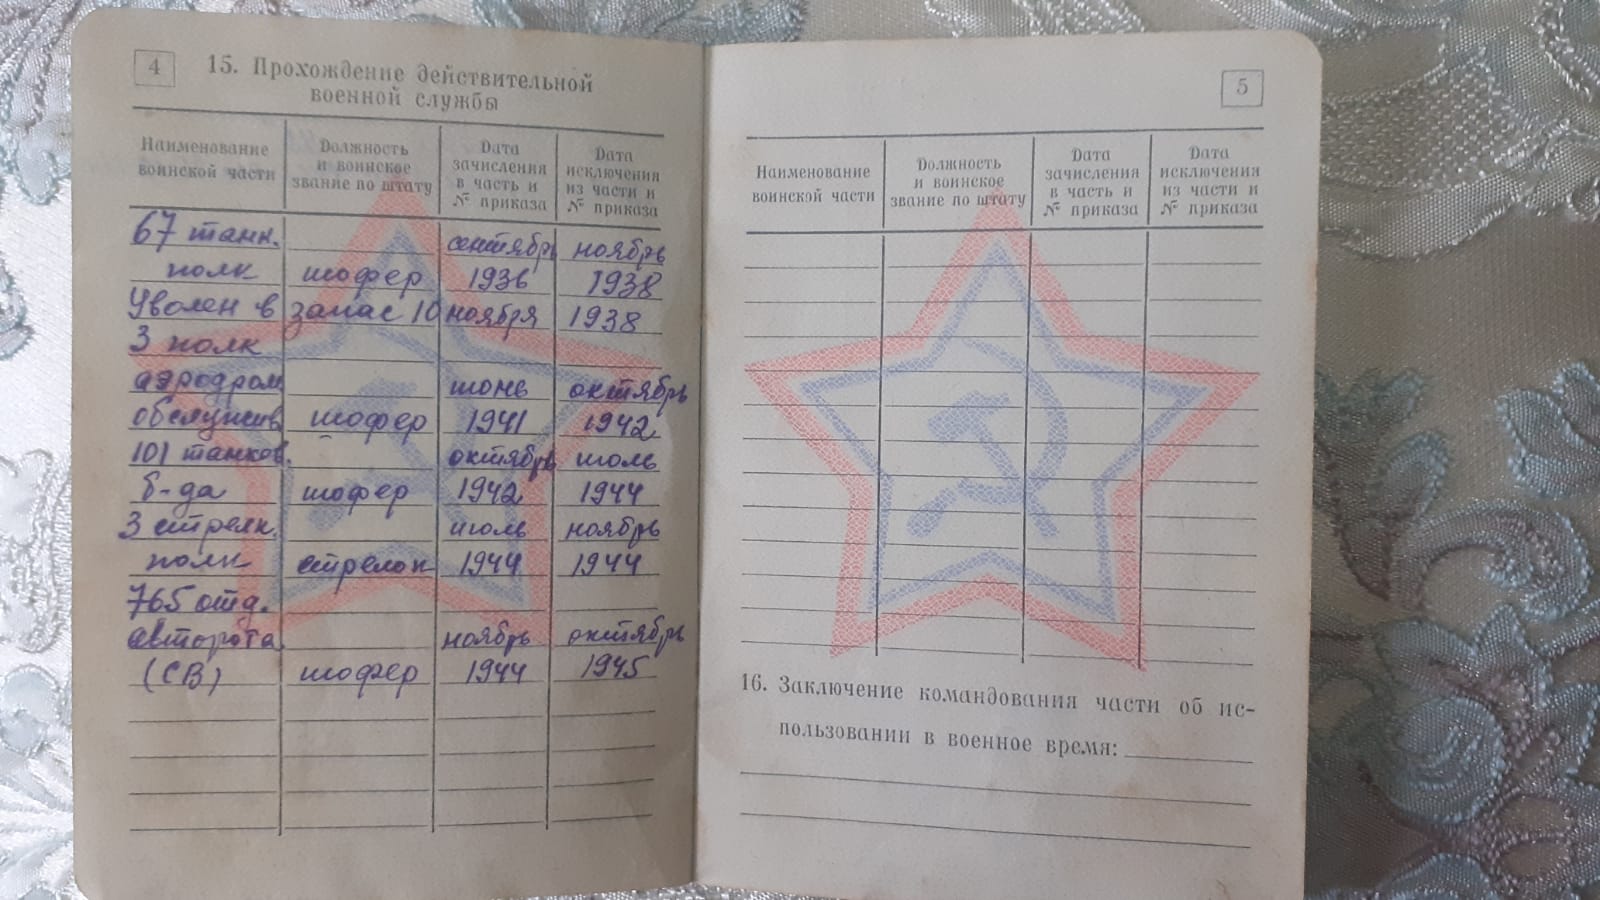 4
15. Прохождение действительной
военной службы
Наименование воинской части
Должность и воинское звание по штату
Дата зачисления в часть и № приказа
Дата исключения из части и № приказа
67 танк. сентябрь ноябрь
полк шофер 1936 1938
Уволен в запас 10 ноября 1938
3 полк
аэродром июнь октябрь
обслужив шофер 1941 1942
101 танков. октябрь июль
б-да шофер 1942 1944
3 стрелк. июль ноябрь
полк стрелок 1944 1944
765 отд.
авторота ноябрь октябрь
(СВ) шофер 1944 1945
5
Наименование воинской части
Должность и воинское звание по штату
Дата зачисления в часть и № приказа
Дата исключения из части и № приказа
16. Заключение командования части об ис-
пользовании в военное время: